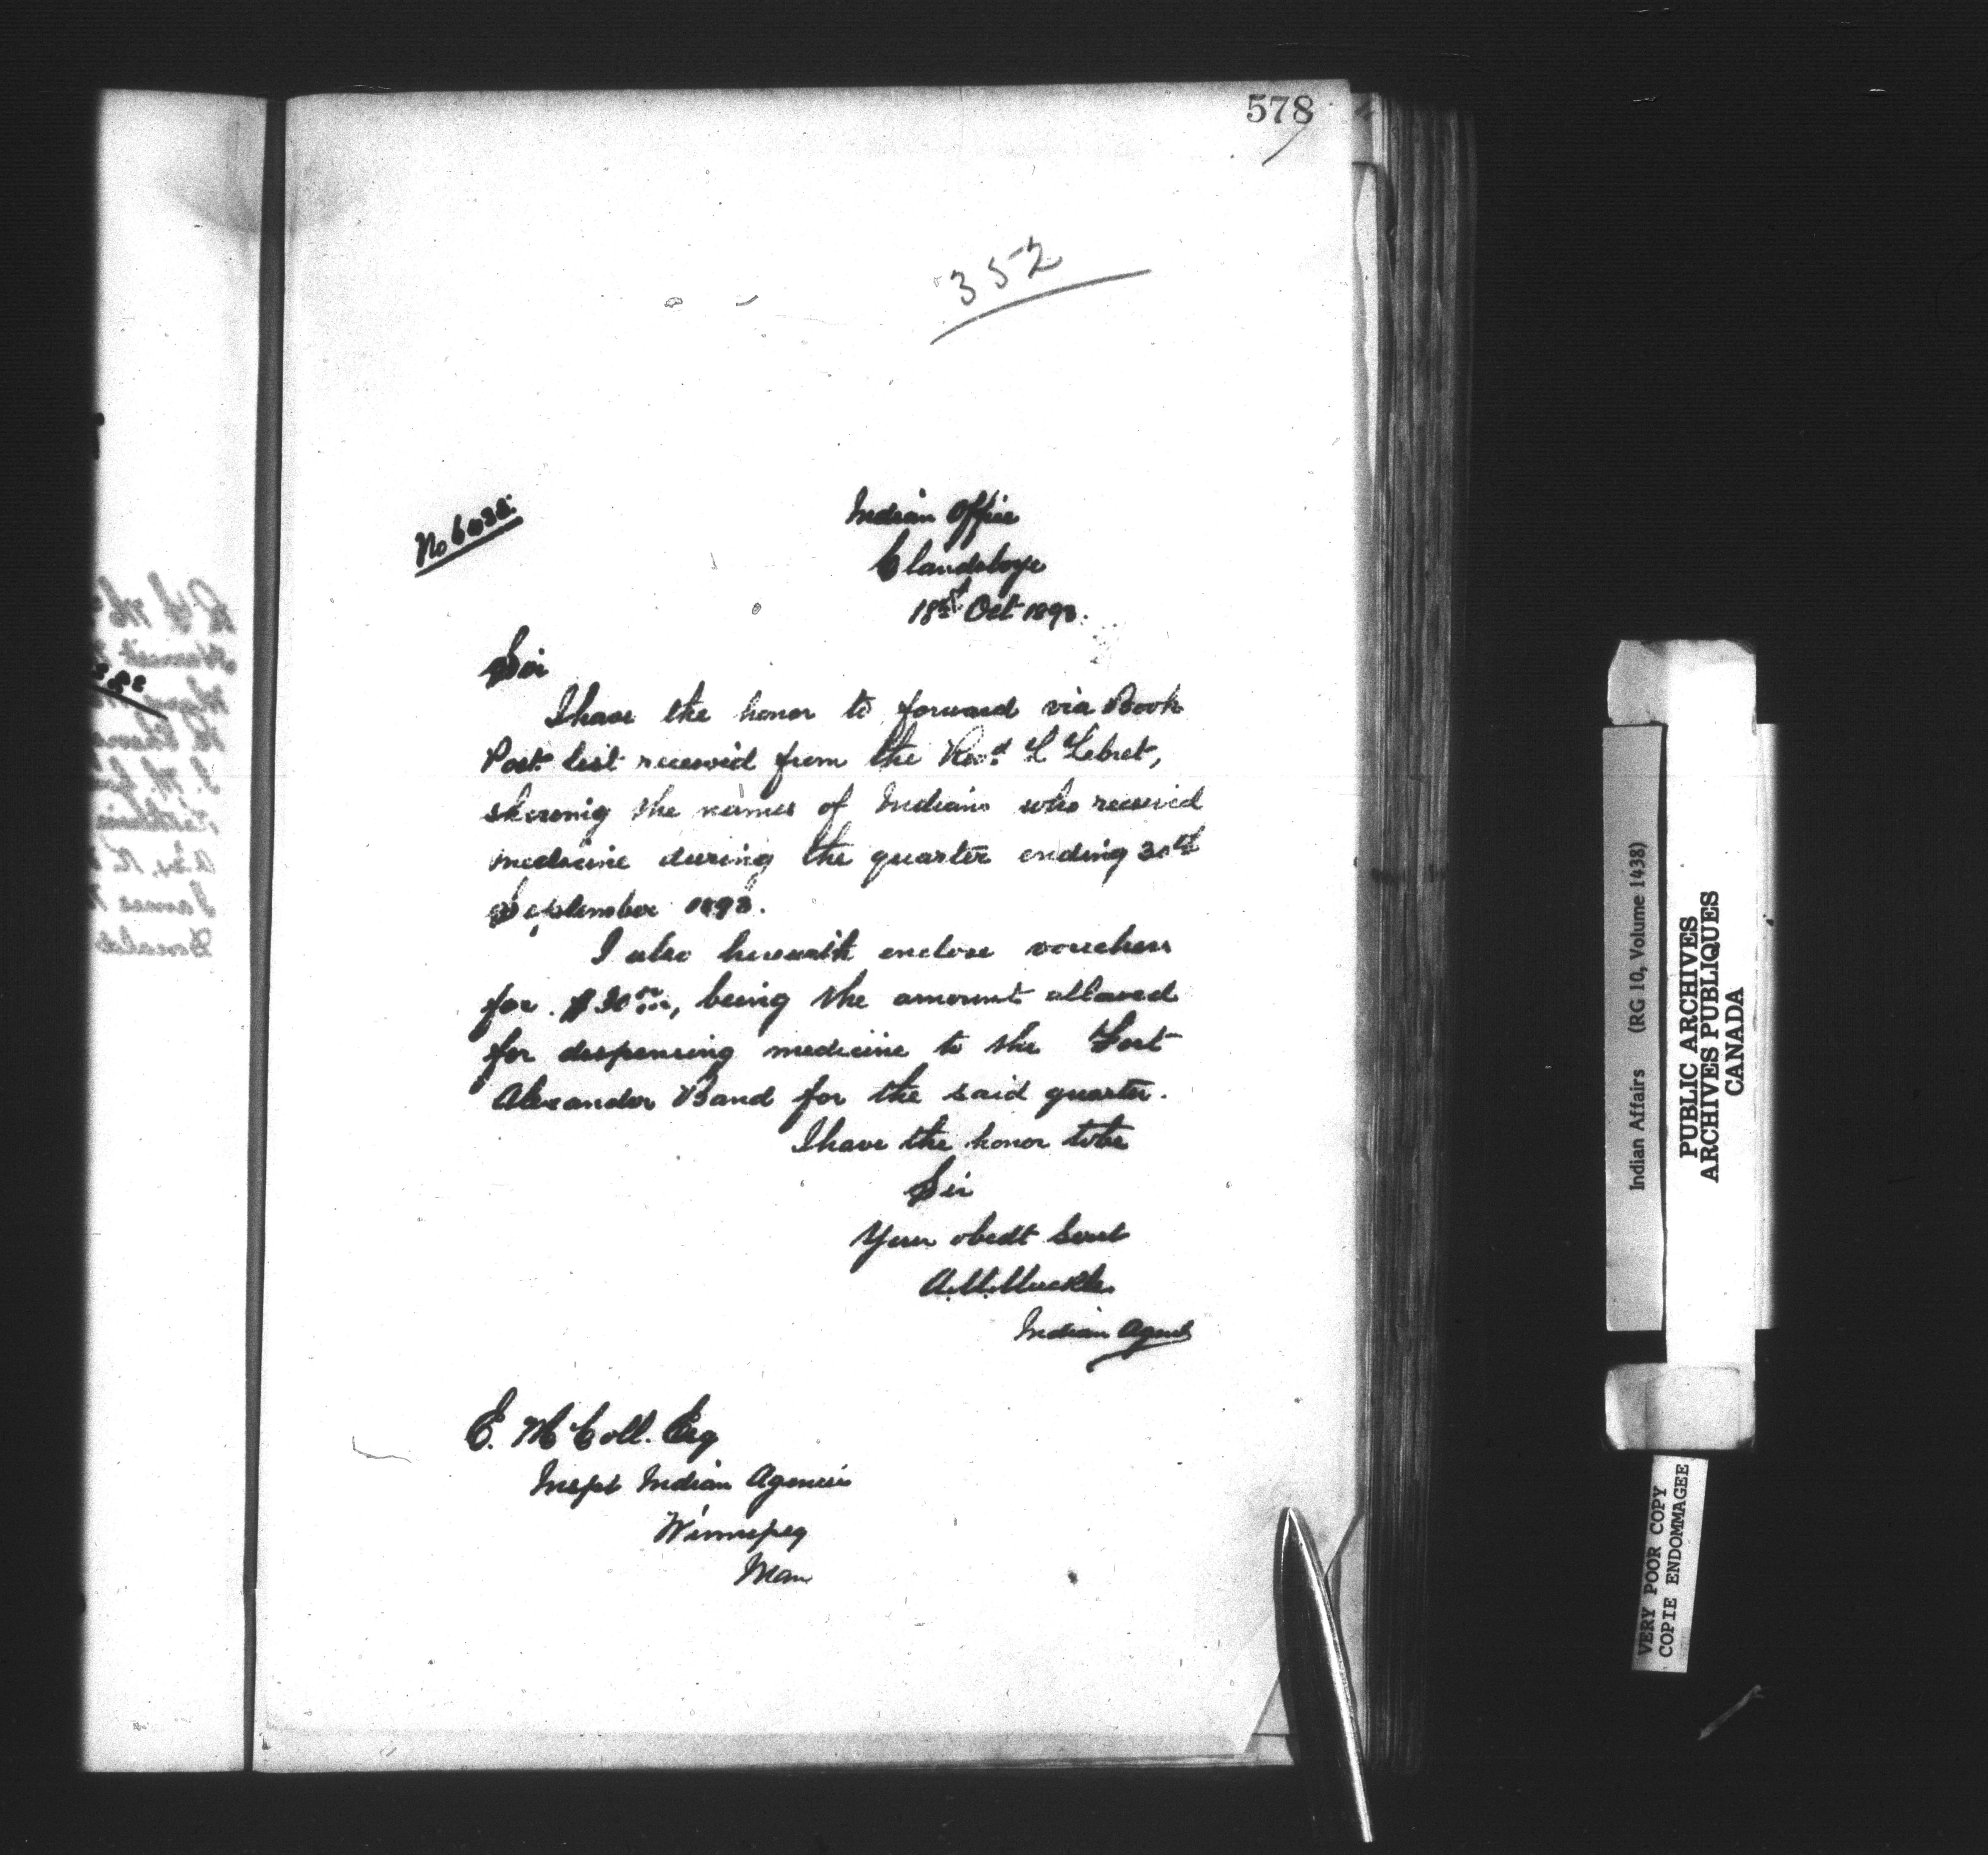 578
352
No
Indian Office
Clandeboye
18th Oct 1893.
Sir
I have the honor to forward via Book
Post list received from the Revd. L Lebret,
showing the names of Indians who received
medicine during the quarter ending 30th
September 1893.
I also herewith enclose vouchers
for $30 00/100, being the amount allowed
for dispensing medicine to the Fort
Alexander Band for the said quarter.
I have the honor to be
Sir
Your obedt Servt
A.M. Muckle
Indian Agent
E. McColl. Esq
Inspt Indian Agencies
Winnipeg
Man
Indian Affairs (RG 10, Volume 1438)
PUBLIC ARCHIVES
ARCHIVES PUBLIQUES
CANADA
VERY POOR COPY
COPIE ENDOMMAGEE